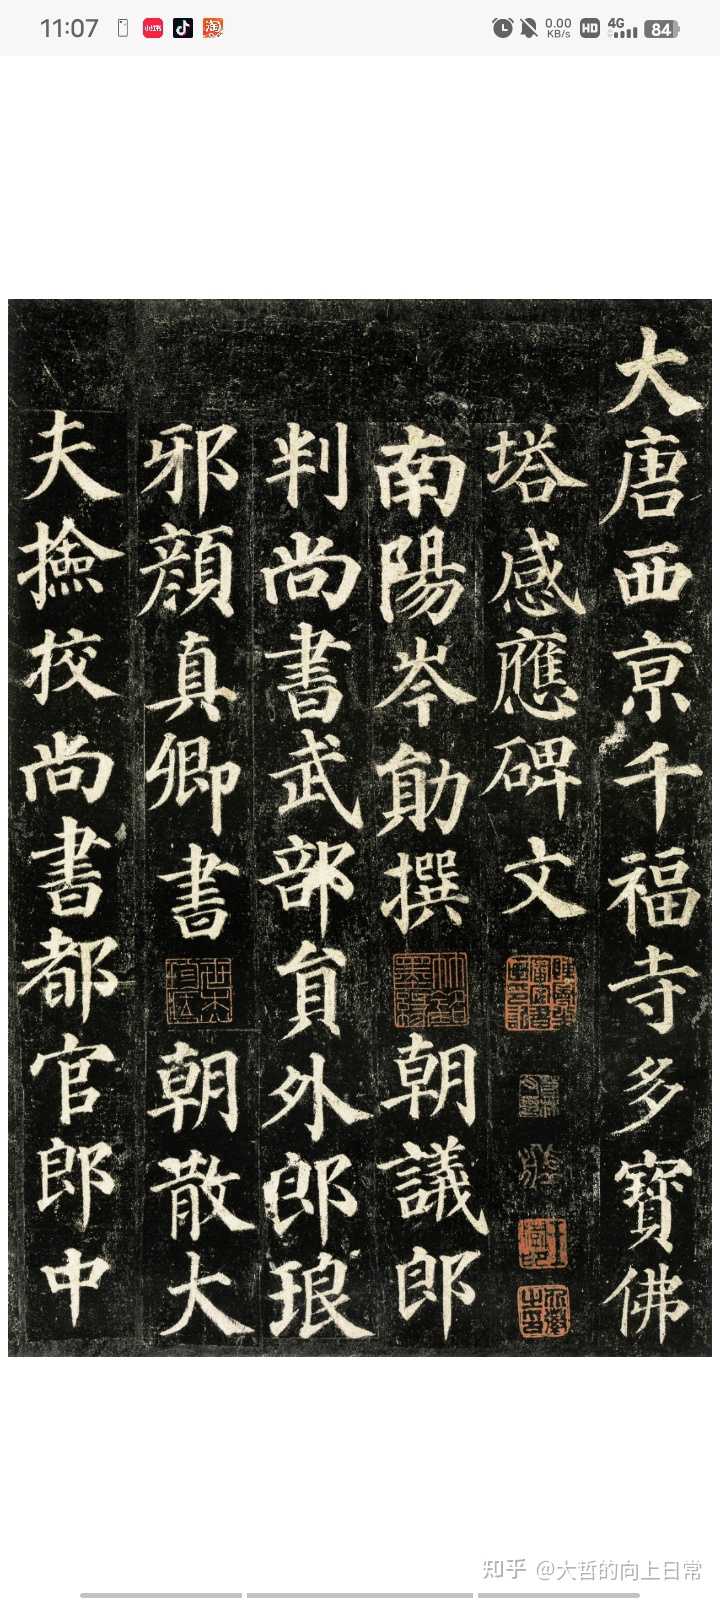 11:07
小红书
淘
0.00
KB/s
HD
4G
84
大唐西京千福寺多寶佛
塔感應碑文
南陽岑勛撰
朝議郎
判尚書武部員外郎琅
邪顏真卿書
朝散大
夫撿挍尚書都官郎中
知乎 @大哲的向上日常